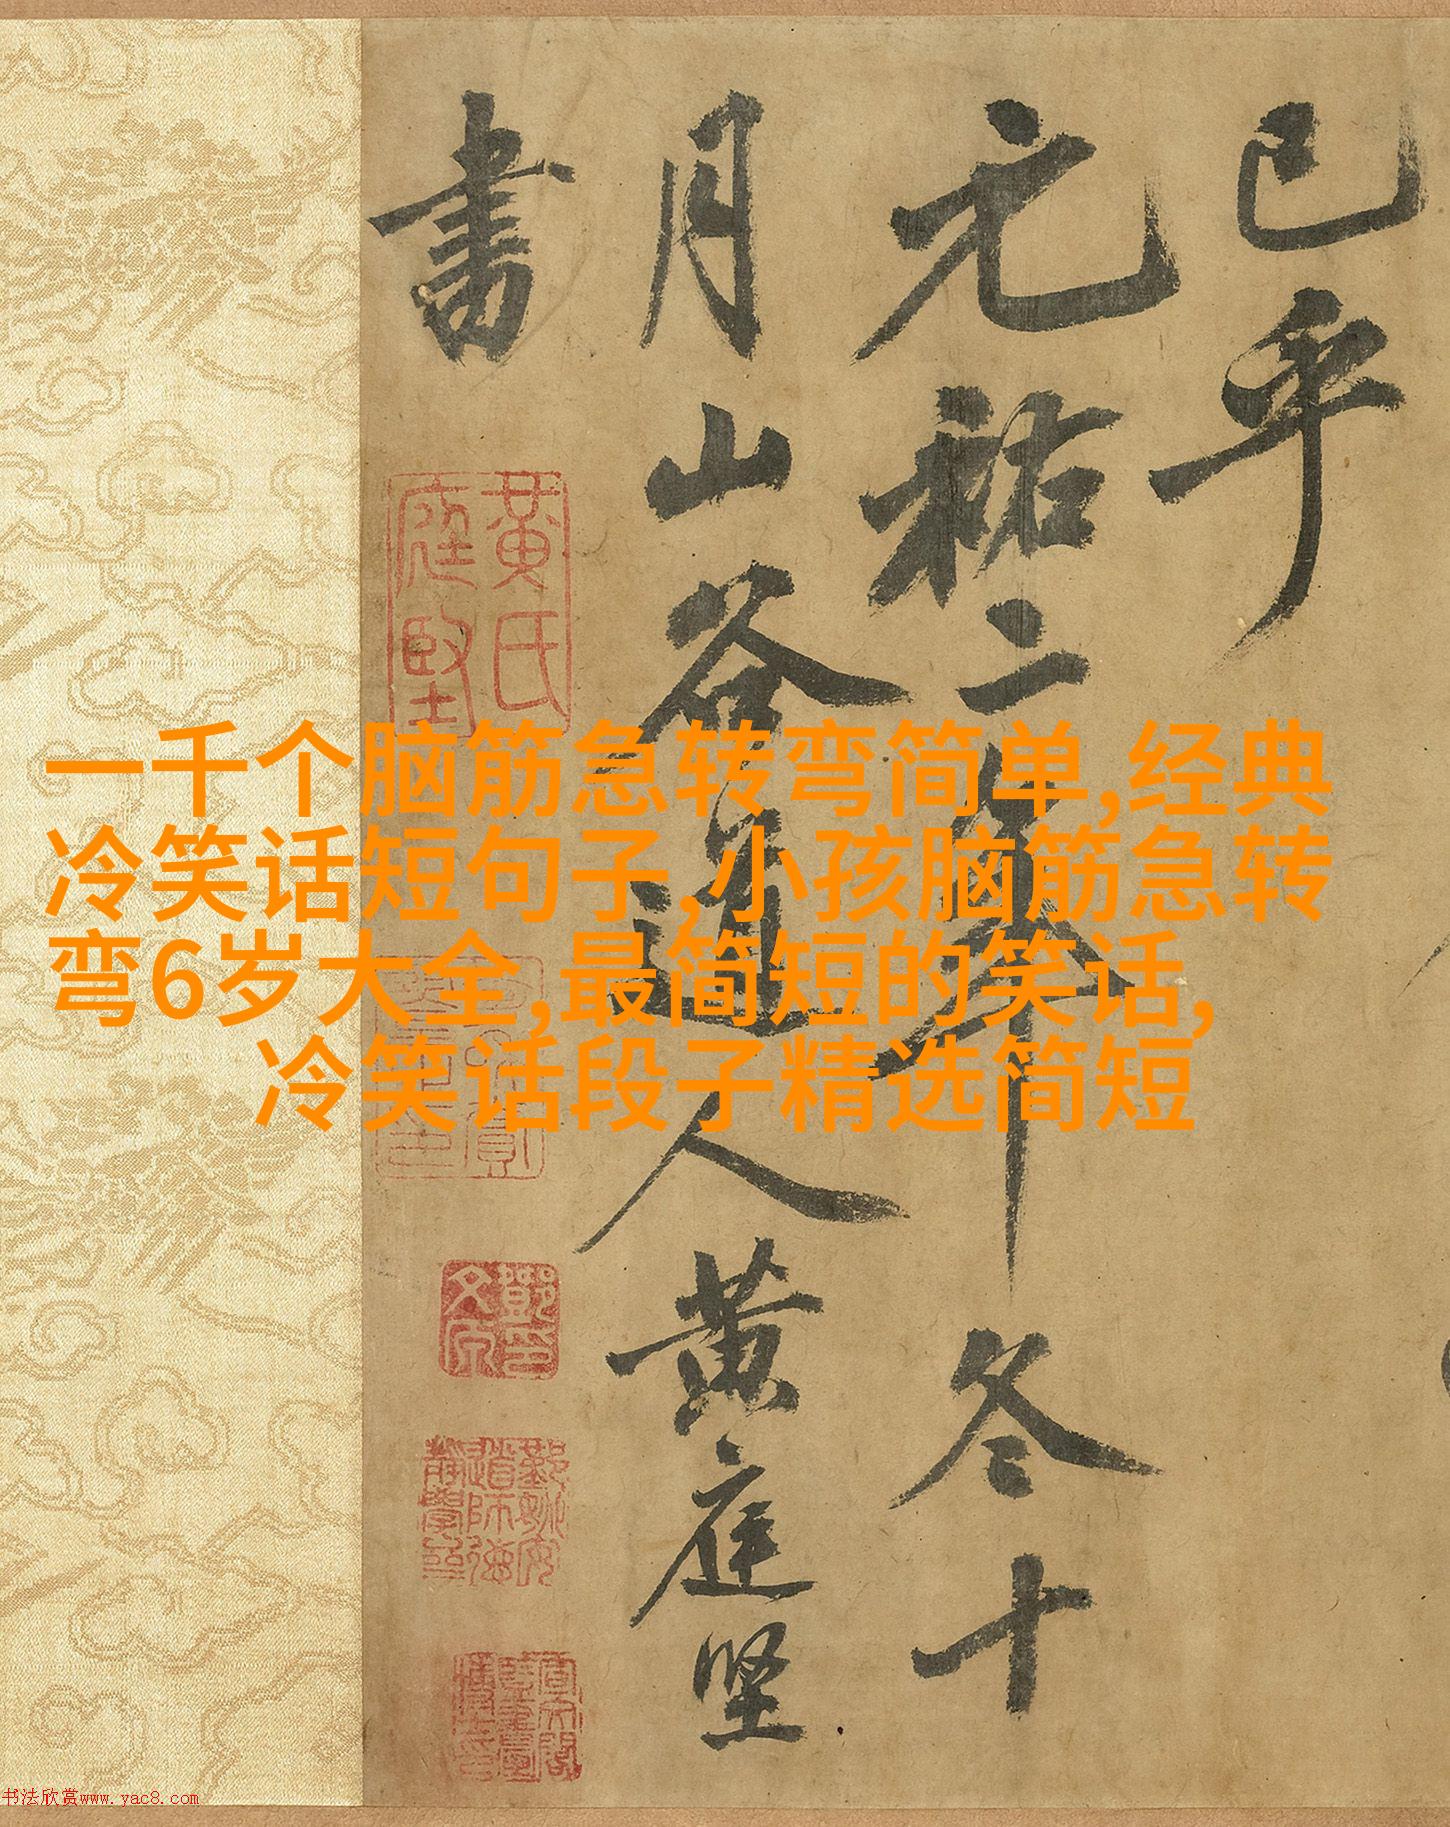 已乎
元祐二年冬十
月山谷道人黄庭坚
書
黄氏
庭堅
一千个脑筋急转弯简单,经典
冷笑话短句子,小孩脑筋急转
弯6岁大全,最简短的笑话,
冷笑话段子精选简短
书法欣赏www.yac8.com